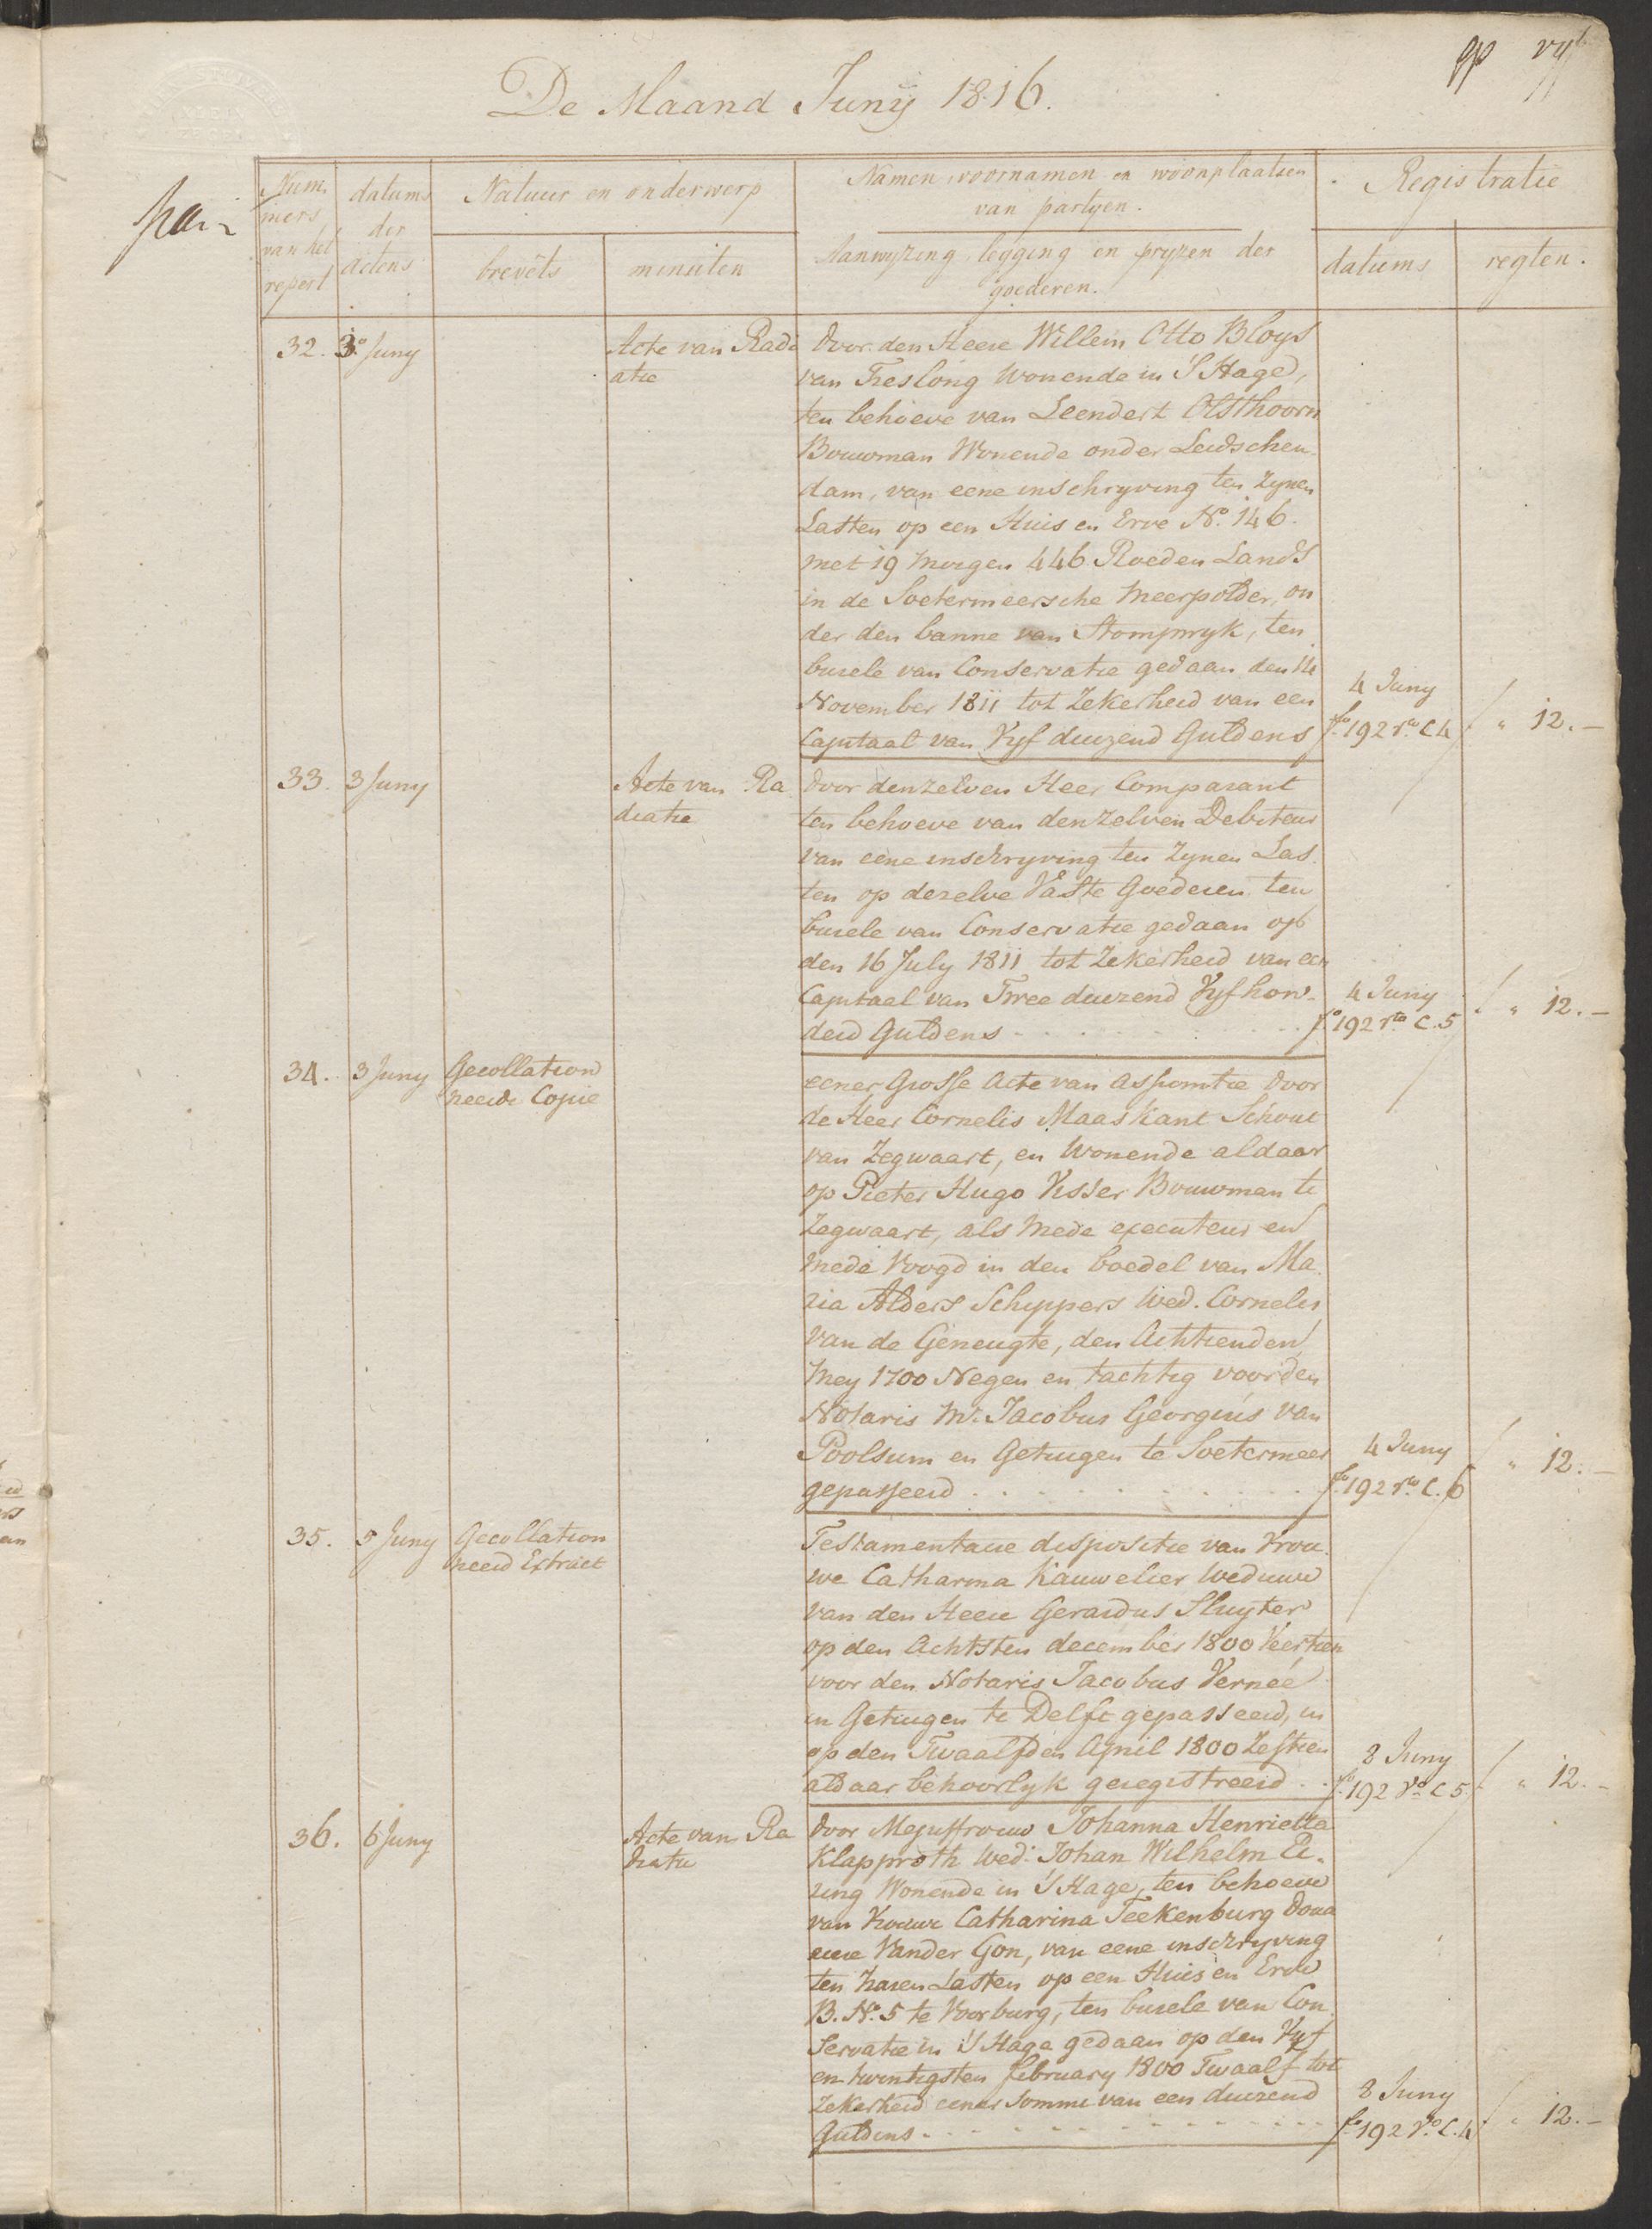 De Maand Junÿ 1816.
Num,
mers
van het
repert
datums
der
actens
Natuur en onderwerp
brevêts
minuten
Namen, voornamen en woonplaatsen
van partyen.
Aanwyzing, legging en pryzen der
goederen.
Registratie
datums
regten.
32. 3 Juny
Acte van Radi
atie
door den Heere Willem Otto Bloys
van Treslong Wonende in 'S Hage,
ten behoeve van Leendert Olsthoorn
Bouwman Wonende onder Leidschen
dam, van eene inschryving ten Zynen
Lasten op een Huis en Erve No. 146.
met 19 morgen 446 Roeden Lands
in de Soetermeersche Meerpolder, on
der den banne van Stompwyk, ten
burele van Conservatie gedaan den 14
November 1811 tot Zekerheid van een
Capitaal van Vyf duizend Guldens
4 Juny
fo. 192 ro. C 4
" 12.-
33. 3 Juny
Acte van Ra
diatie
door denzelven Heer Comparant
ten behoeve van denzelven Debiteur
van eene inschryving ten Zynen Las
ten op dezelve Vaste Goederen ten
burele van Conservatie gedaan op
den 16 July 1811 tot Zekerheid van een
Capitaal van Twee duizend Vyfhon-
derd Guldens
4 Juny
fo. 192 rto C. 5
" 12.-
34. 3 Juny
Gecollation
neerde Copie
eener Grosse Acte van Assomtie door
de Heer Cornelis Maaskant Schout
van Zegwaart, en Wonende aldaar
op Pieter Hugo Visser Bouwman te
Zegwaart, als Mede executeur en
mede Voogd in den boedel van Ma
ria Alders Schippers Wed. Cornelis
van de Geneugte, den Achtienden
Mey 1700 Negen en tachtig voor den
Notaris Mr. Jacobus Georgius van
Poolsum en Getuigen te Soetermeer
gepasseerd
4 Juny
fo. 192 ro. C. 6
" 12.-
35. 5 Juny
Gecollation
neerd Extract
Testamentaire dispositie van Vrou
we Catharina Kauwelier Weduwe
van den Heere Gerardus Sluyter
op den Achtsten december 1800 Veertien
voor den Notaris Jacobus Vernée
en Getuigen te Delft gepasseerd, en
op den Twaalfden April 1800 Zestien
aldaar behoorlyk geregistreerd
8 Juny
fo. 192 Vo. C 5
" 12.-
36. 6 Juny
Acte van Ra
diatie
door Mejuffrouw Johanna Henrietta
Klapproth Wed. Johan Wilhelm Ei-
ring Wonende in 'S Hage, ten behoeve
van Vrouwe Catharina Teekenburg Doua
riere Vander Gon, van eene inschryving
ten haren Lasten op een Huis en Erve
B. No. 5 te Voorburg, ten burele van Con
servatie in 'S Hage gedaan op den Vyf
en twintigsten february 1800 Twaalf tot
Zekerheid eener Somme van een duizend
Guldens
8 Juny
fo. 192 Vo. C. 4
" 12.-